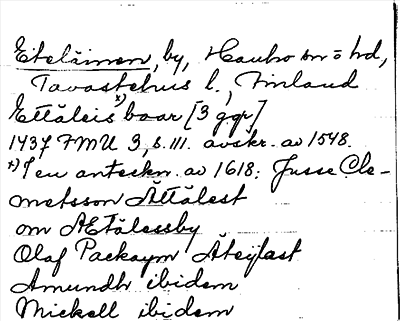 Eteläinen, by, Hauho sn o hd,
Tavastehus l., Finland
Ettäleis x) baar [3 ggr]
1437 FMU 3, s. 111. avskr. av 1548.
x) I en anteckn. av 1618: Jusse Cle-
metsson Ättälest
om AEtälessby
Olaf Packaym Äteÿlast
Amundh ibidem
Mickell ibidem